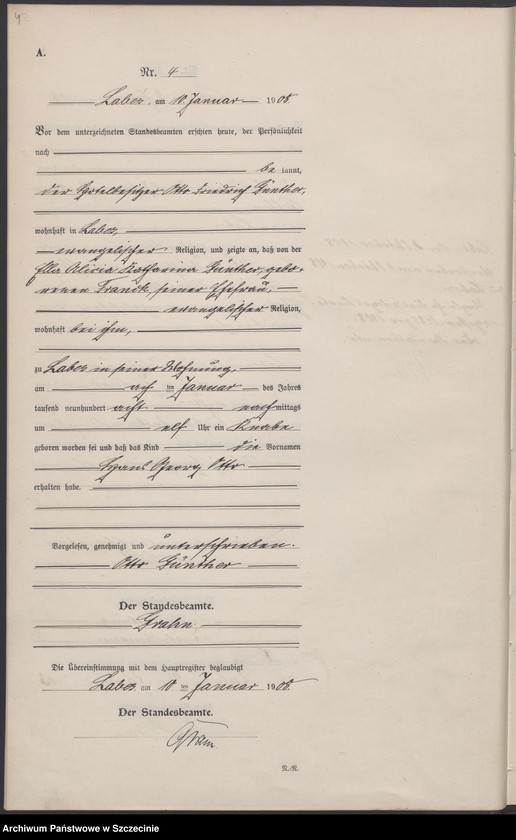 4
A.
Nr. 4
Labes, am 10. Januar 1908
Vor dem unterzeichneten Standesbeamten erschien heute, der Persönlichkeit
nach
be kannt,
der Hotelbesitzer Otto Friedrich Günther,
wohnhaft in Labes,
evangelischer Religion, und zeigte an, daß von der
Ella Alicia Katharina Günther, gebo-
renen Franck, seiner Ehefrau,
evangelischer Religion,
wohnhaft bei ihm,
zu Labes in seiner Wohnung,
am acht ten Januar des Jahres
tausend neunhundert acht nach mittags
um elf Uhr ein Knabe
geboren worden sei und daß das Kind die Vornamen
Hans Georg Otto
erhalten habe.
Vorgelesen, genehmigt und unterschrieben.
Otto Günther
Der Standesbeamte.
Die Übereinstimmung mit dem Hauptregister beglaubigt
Labes, am 10 ten Januar 1908.
Der Standesbeamte.
N.-R.
Archiwum Państwowe w Szczecinie